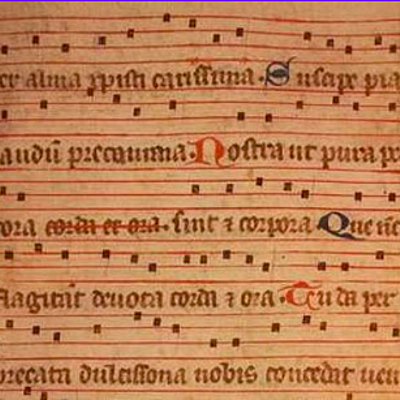 er alma xpisti carissima. Suscipe pia
audiu precamina. Nostra ut pura pe
cora corda et ora. sint ⁊ corpora Que
flagitat deuota corda ⁊ ora. Tu da per
precata dulcissona nobis concedat ueni